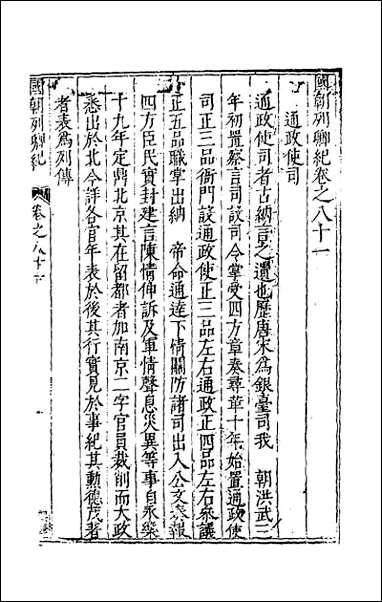 國朝列卿紀卷之八十一
通政使司
通政使司者古納言之遺也歷唐宋爲銀臺司我 朝洪武三
年初置察言司設司令掌受四方章奏尋革十年始置通政使
司正三品衙門設通政使正三品左右通政正四品左右叅議
正五品職掌出納 帝命通達下情關防諸司出入公文奏報
四方臣民實封建言陳情伸訴及軍情聲息災異等事自永樂
十九年定鼎北京其在留都者加南京二字官員裁削而大政
悉出於北今詳各官年表於後其行實見於事紀其勳德茂著
者表爲列傳
國朝列卿紀
卷之八十一